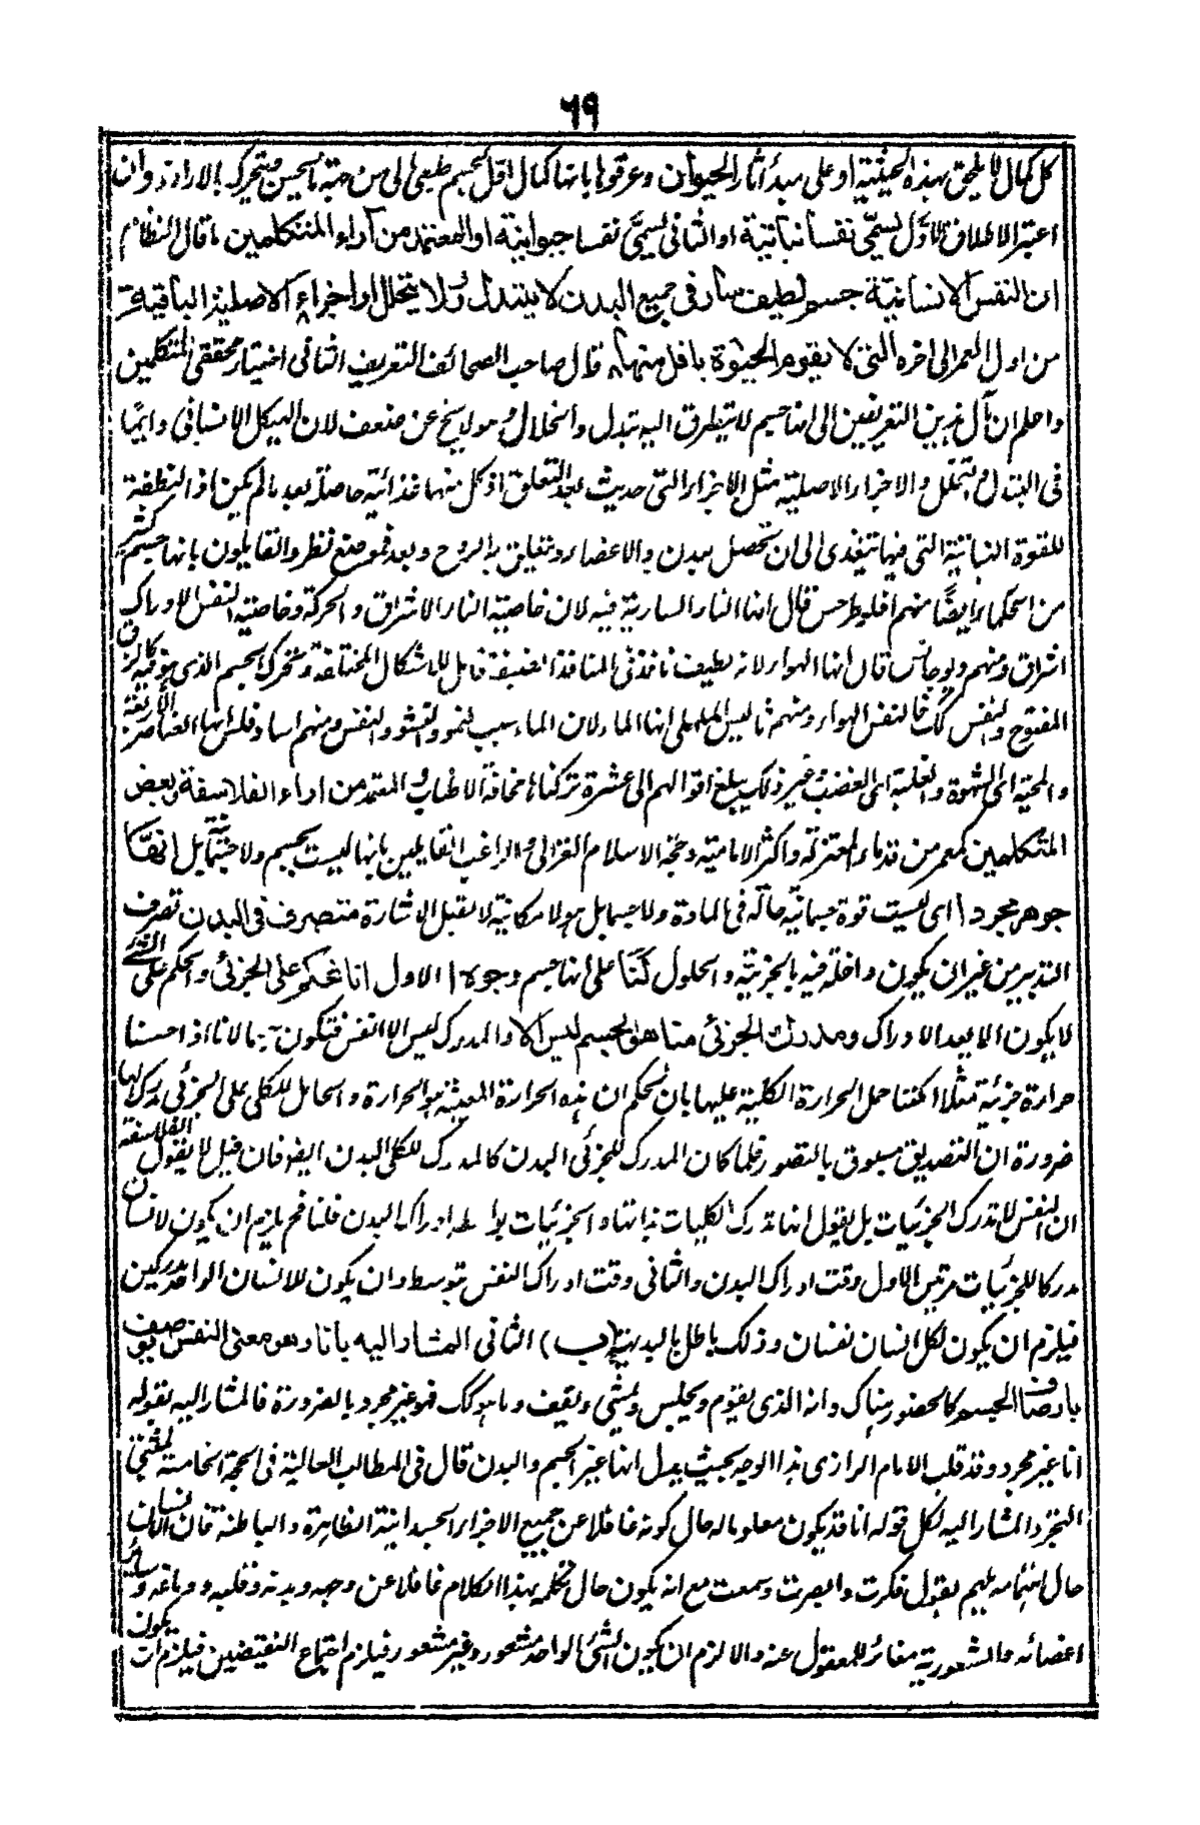 ٦٩
كل كمال لا يلحق بهذه الحيثية او على مبدأ آثار الحيوان وعرفوها بانها كمال اول لجسم طبعى الى من جهة ما يحس ويتحرك بالارادة وان
اعتبر الاطلاق الاول يسمى نفسا نباتية او الثانى يسمى نفسا حيوانية او المعتمد من آراء المتكلمين ما قال النظام
ان النفس الانسانية جسم لطيف سار فى جميع البدن لا يتبدل ولا يتحلل او اجزاء الاصلية الباقية
من اول العمر الى اخره التى لا يقوم الحيوة باقل منها قال صاحب الصحائف التعريف الثانى اختيار محققى المتكلمين
واعلم ان مآل هذين التعريفين الى انها جسم لا يتطرق اليه تبدل وانحلال وهو لا يخ عن ضعف لان الهيكل الانسانى دائما
فى التبدل والتحلل والاجزاء الاصلية مثل الاجزاء التى حدثت بعد التعلق اذ كل منها غذائية حاصلة بعد ما لم يكن اذ النطفة
للقوة النباتية التى فيها تتغذى الى ان تحصل بدن والاعضاء وتتعلق به الروح وبعد فموضع نظر والقايلون بانها جسم كثير
من الحكماء ايضا منهم افلوطرخس قال انها النار السارية فيه لان خاصية النار الاشراق والحركة وخاصية النفس الادراك
اشراق ومنهم ديوجانس قال انها الهواء لانه لطيف نافذ فى المنافذ الضيقة قابل للاشكال المختلفة ويحرك الجسم الذى هو فيه كالزق
المفتوح والنفس كك فالنفس الهواء ومنهم ثاليس الملطى انها الماء لان الماء سبب لنمو والنشو والنفس ومنهم انبادقلس انها العناصر الأربعة
والمحبة اى الشهوة والغلبة اى الغضب وغير ذلك يبلغ اقوالهم الى عشرة تركناها مخافة الاطناب والمعتمد من اراء الفلاسفة وبعض
المتكلمين كمعمر من قدماء المعتزلة واكثر الامامية وحجة الاسلام الغزالى والراغب القايلين بانها ليست بجسم ولا جسمانية بل انها
جوهر مجرد اى ليست قوة جسمانية حالة فى المادة ولا جسما بل هو لا مكانية لا يقبل الاشارة متصرف فى البدن تصرف
التدبير من غير ان يكون داخلة فيه بالجزئية والحلول لنا على انها جسم وجوه ا الاول انا نحكم على الجزئى والحكم على الشئ
لا يكون الا بعد الادراك ومدرك الجزئى منا هو الجسم ليس الا والمدرك ليس الا النفس فتكون بما لانا اذ احسنا
حرارة جزئية مثلا امكننا حمل الحرارة الكلية عليها بان نحكم ان هذه الحرارة المعينة هو الحرارة والحامل للكلى على الجزئى مدرك لها
ضرورة ان التصديق مسبوق بالتصور فلما كان المدرك للجزئى البدن كالمدرك للكلى البدن ايضا فان قيل لا يقول الفلاسفة
ان النفس لا تدرك الجزئيات بل يقول انها تدرك الكليات بذاتها والجزئيات بواسطة ادراك البدن قلنا فح يلزم ان يكون لانسان
مدركا للجزئيات مرتين الاول وقت ادراك البدن والثانى وقت ادراك النفس بتوسط وان يكون للانسان الواحد مدركين
فيلزم ان يكون لكل انسان نفسان وذلك باطل بالبديهة (ب) الثانى المشار اليه بانا وهو معنى النفس يوصف
باوصاف الجسم كالحضور هناك وانه الذى يقوم ويجلس ويمشى ويقف وما هو كك فهو غير مجرد بالضرورة فالمشار اليه بقوله
انا غير مجرد وقد قلب الامام الرازى هذا الوجه بحيث يدل انها غير الجسم والبدن قال فى المطالب العالية فى الحجة الخامسة لمثبتى
التجرد المشار اليه لكل بقوله انا قد يكون معلوما له حال كونه غافلا عن جميع الاجزاء الجسدانية الظاهرة والباطنة فان الانسان
حال اهتمامه بمهم يقول فكرت وابصرت وسمعت مع انه يكون حال تكلمه بهذا الكلام غافلا عن وجهه وبدنه وقلبه ودماغه وسائر
اعضائه والمشعور به مغائر للمغفول عنه والا لزم ان يكون الشئ الواحد مشعورا وغير مشعور فيلزم اجتماع النقيضين فيلزم ان يكون